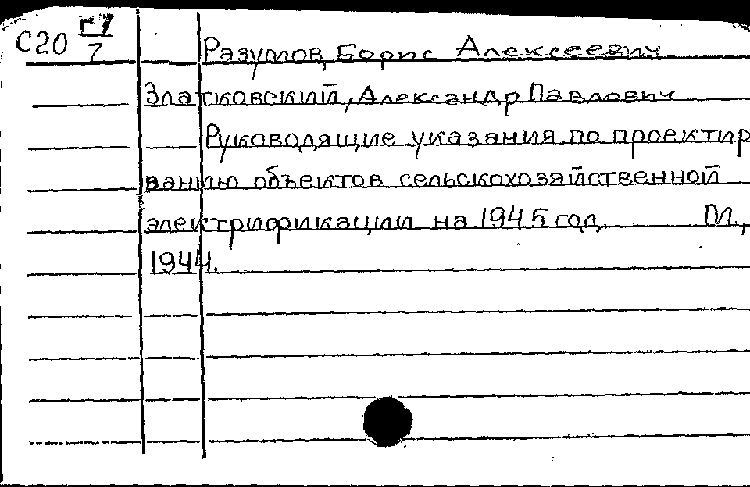 С20 г7/7
Разумов, Борис Алексеевич
Златковский, Александр Павлович
Руководящие указания по проектир
ванию объектов сельскохозяйственной
электрификации на 1945 год. М.,
1944.